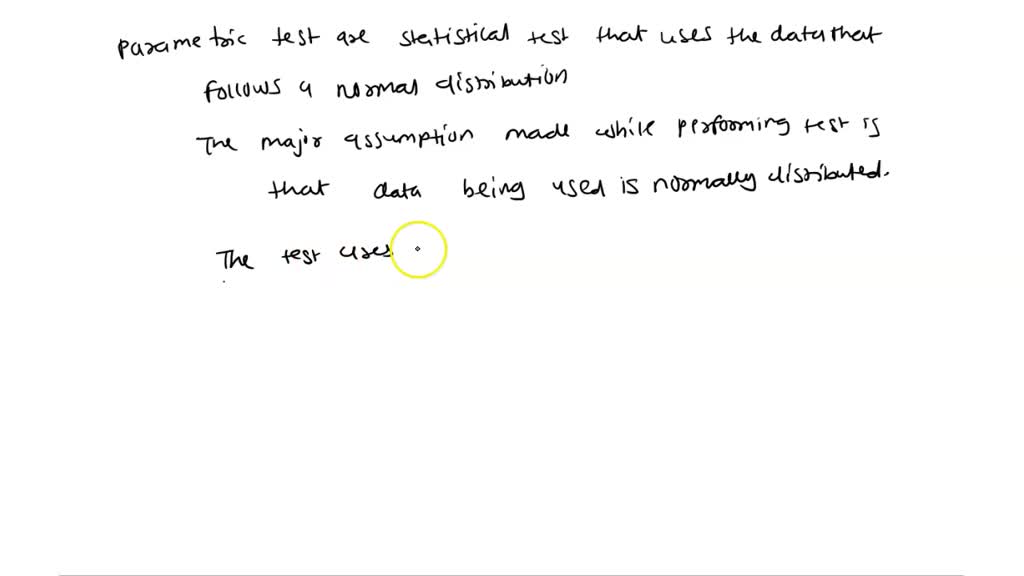 parametric test are statistical test that uses the data that
follows a normal distribution
The major assumption made while performing test is
that data being used is normally distributed.
The test uses